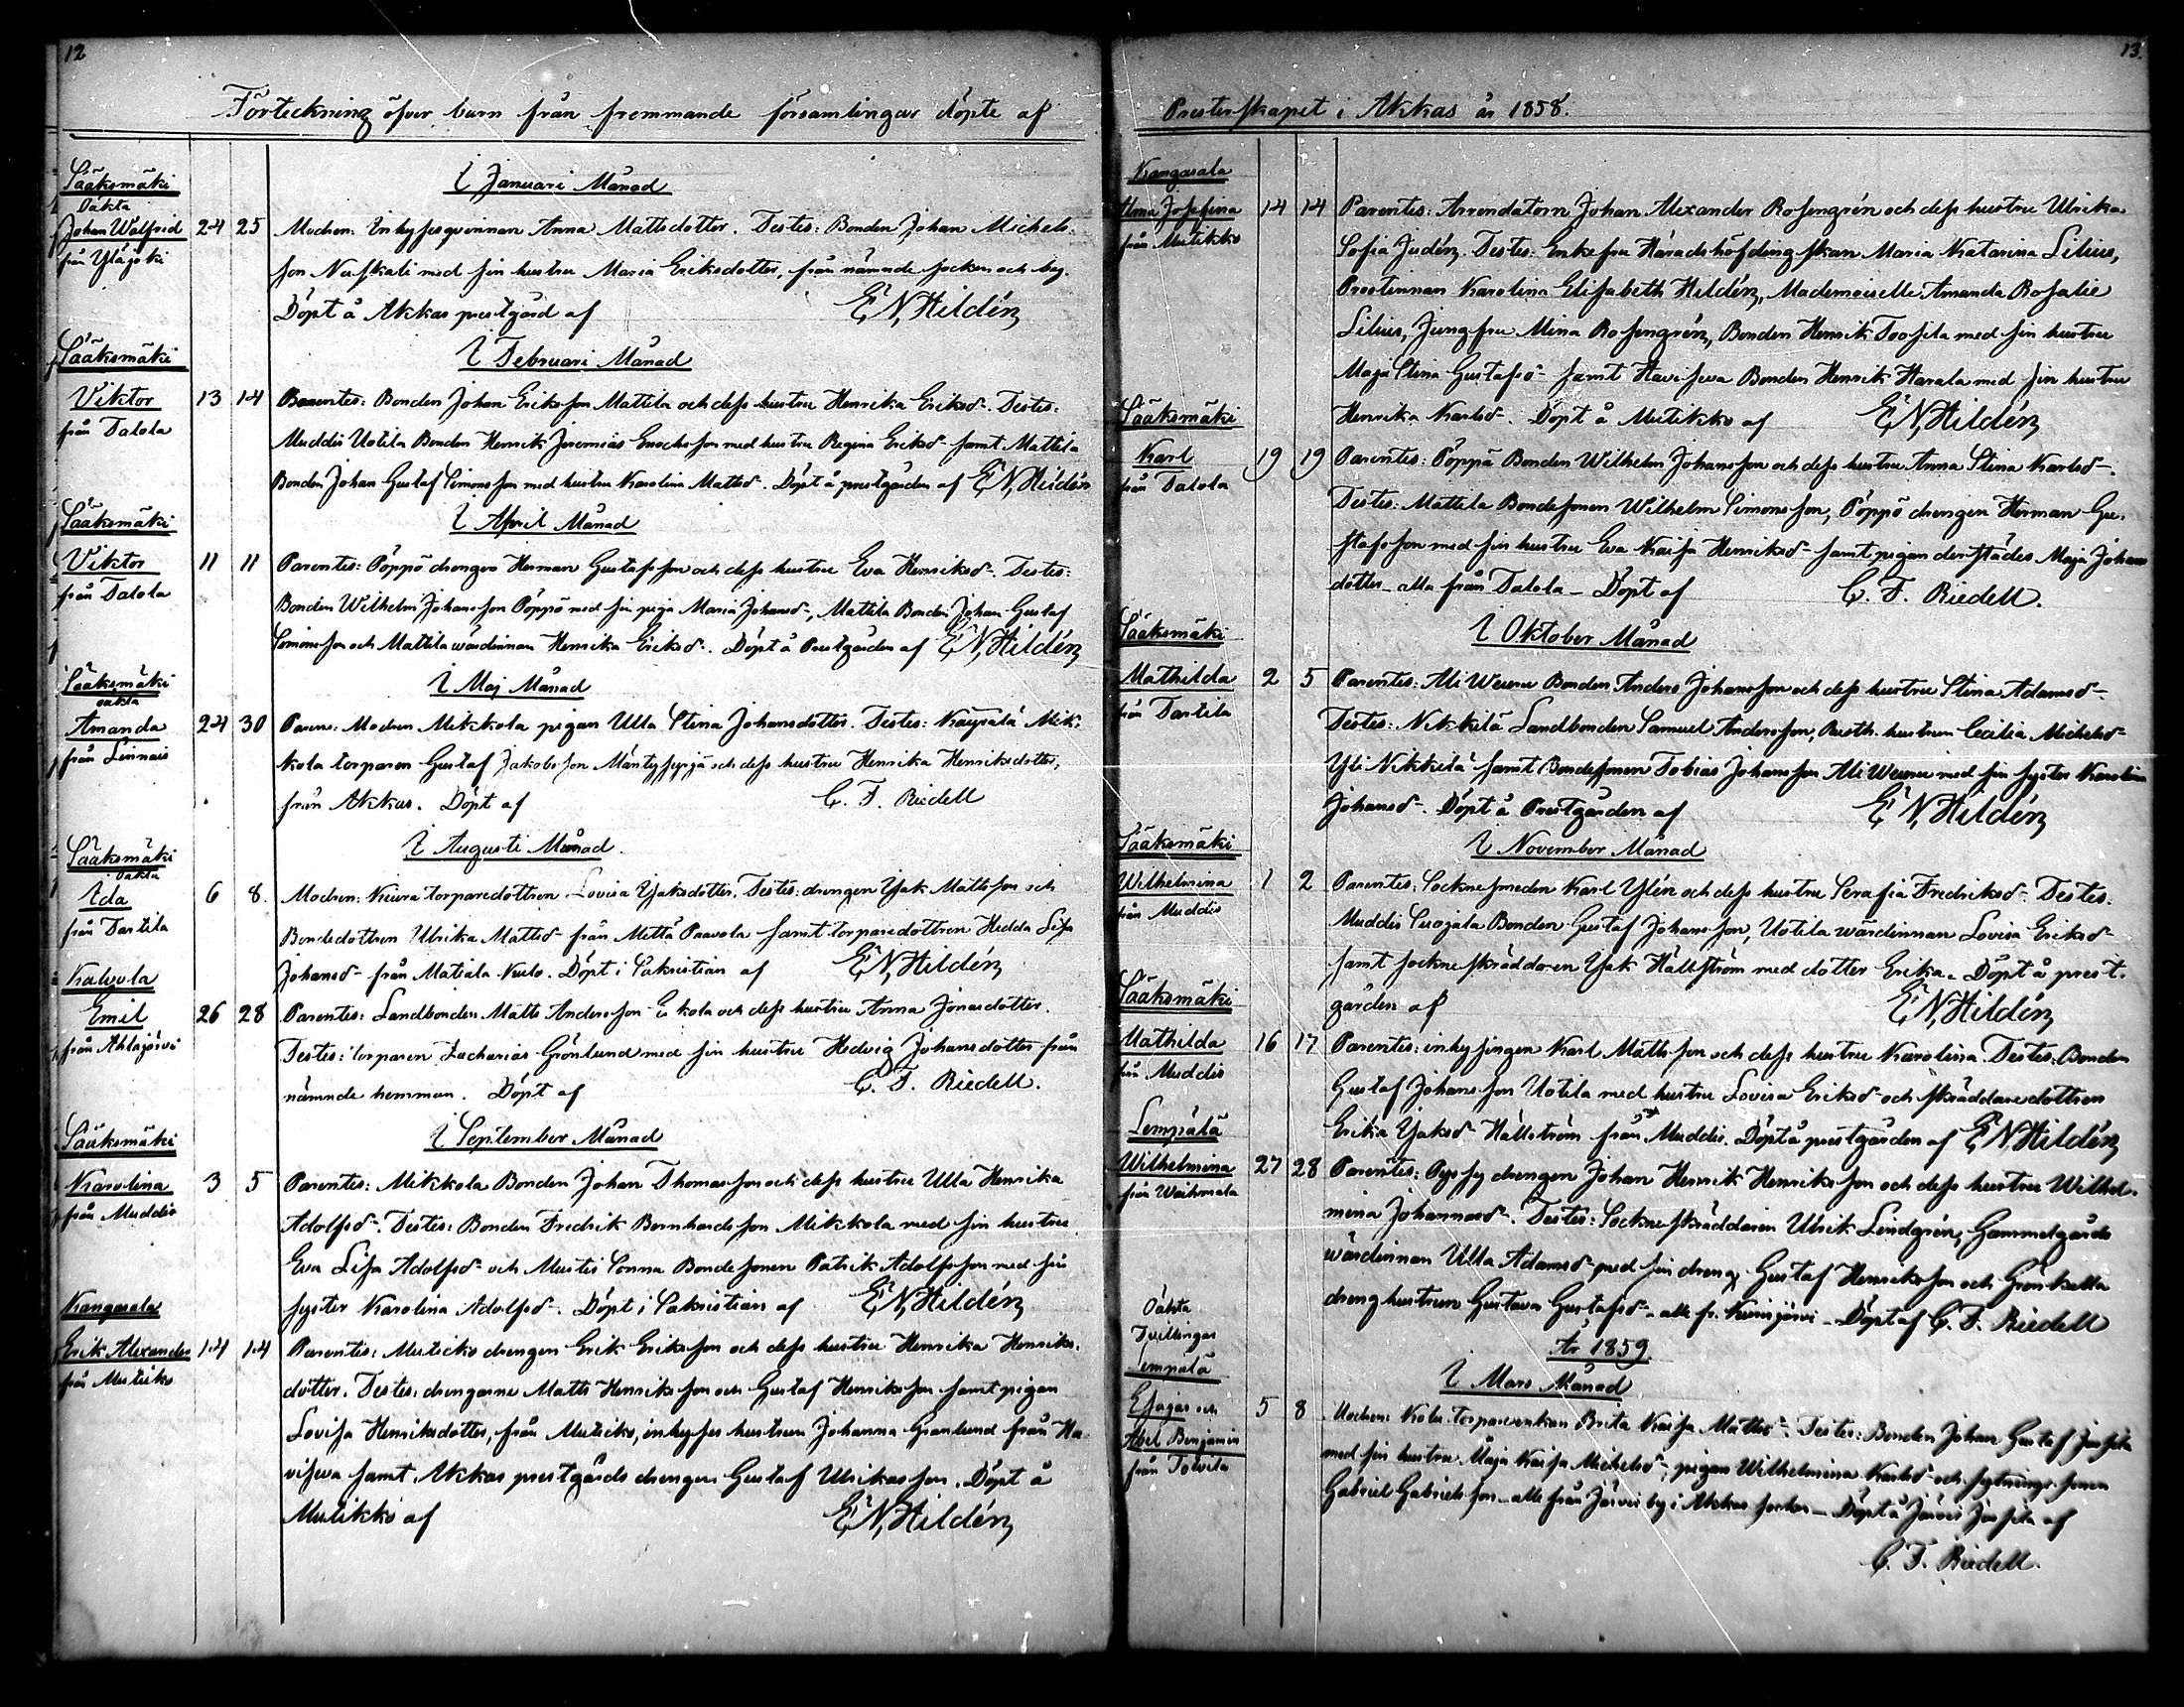 12
Förteckning öfver barn från fremmande församlingar döpte af
I Januari Månad
Sääksmäki
Oäkta
Johan Walfrid 24 25 Modren: Inhysesqvinnan Anna Mattsdotter. Testes: Bonden Johan Michels-
från Yläjoki son med sin hustru Maria Eriksdotter, från nämnde socken och by.
Döpt å Akkas prestgård af E N Hildén
I Februari Månad
Sääksmäki
Viktor 13 14 Parentes: Bonden Johan Eriksson Mattila och dess hustru Henrika Eriksd-. Testes:
från Talola Muddis Uotila Bonden Henrik Jeremias Enochsson med hustru Regina Eriksd- samt Mattila
Bonden Johan Gustaf Simonsson med hustru Karolina Mattsd-. Döpt å prestgården af E N Hildén
I April Månad
Sääksmäki
Viktor 11 11 Parentes: Pöppö drengen Herman Gustafsson och dess hustru Eva Henriksd-. Testes:
från Talola Bonden Wilhelm Johansson Pöppö med sin piga Maria Johansd-, Mattila Bonden Johan Gustaf
Simonsson och Mattila wärdinnan Henrika Eriksd-. Döpt å Prestgården af E N Hildén
I Maj Månad
Sääksmäki
oäkta
Amanda 24 30 Parens: Modren Mikkola pigan Ulla Stina Johansdotter. Testes: Mik-
från Linnais kola torparen Gustaf Jakobsson Mäntysyrjä och dess hustru Henrika Henriksdotter,
från Akkas. Döpt af C. F. Riedell
I Augusti Månad.
Sääksmäki
oäkta
Ida 6 8. Modren: Kiura torparedottren Lovisa Isaksdotter. Testes: drengen Isak Mattsson och
från Tarttila Bondedottren Ulrika Mattsd- från Mettä Paavola samt torparedottren Hedda Lisa
Johansd- från Matiala . Döpt i Sakristian af E N Hildén
Kalvola
Emil 26 28 Parentes: Landbonden Matts Andersson Eskola och dess hustru Anna Jonasdotter.
från Ahlajärvi Testes: torparen Zacharias Grönlund med sin hustru Hedvig Johansdotter från
nämnde hemman. Döpt af C. F. Riedell.
I September Månad
Sääksmäki
Karolina 3 5 Parentes: Mikkola Bonden Johan Thomasson och dess hustru Ulla Henrika
från Muddis Adolfsd-. Testes: Bonden Fredrik Bernhardsson Mikkola med sin hustru
Eva Lisa Adolfsd- och Mustis Bondesonen Patrik Adolfsson med sin
syster Karolina Adolfsd-. Döpt i Sakristian af E N Hildén
Kangasala
Erik Alexander 14 14 Parentes: Muticko drengen Erik Eriksson och dess hustru Henrika Henriks-
från Mutikko dotter. Testes: drengarne Matts Henriksson och Gustaf Henriksson samt pigan
Lovisa Henriksdotter, från Mutikko, inhyses hustrun Johanna Granlund från Ha-
viseva samt Akkas prestgårds drengen Gustaf Ulrikasson. Döpt å
Mutikko af E N Hildén
13.
Presterskapet i Akkas år 1858.
Kangasala
Alma Josefina 14 14 Parentes: Arrendatorn Johan Alexander Rosengrén och dess hustru Ulrika
från Mutikko Sofia Judén. Testes: Enkefru Häradshöfdingskan Maria Katarina Lilius,
Prostinnan Karolina Elisabeth Hildén, Mademoiselle Amanda Rosalie
Lilius, Jungfru Mina Rosengrén, Bonden Henrik Toosila med sin hustru
Maja Stina Gustafsd- samt Haviseva Bonden Henrik Harala med sin hustru
Henrika Karlsd-. Döpt å Mutikko af E N Hildén
Sääksmäki
Karl 19 19 Parentes: Pöppö Bonden Wilhelm Johansson och dess hustru Anna Stina Karlsd-.
från Talola Testes: Mattila Bondesonen Wilhelm Simonsson, Pöppö drengen Herman Gu-
stafsson med sin hustru Eva Kaisa Henriksd- samt pigan derstädes Maja Johans
dotter alla från Talola - Döpt af C. F. Riedell.
I Oktober Månad
Sääksmäki
Mathilda 2 5 Parentes: Ali Weuru Bonden Anders Johansson och dess hustru Stina Adamsd-
från Tarttila Testes: Nikkilä Landbonden Samuel Andersson, Rusth. hustrun Cecilia Michelsd-
Yli Nikkilä samt Bondesonen Tobias Johansson Ali Weuru med sin syster Karolina
Johansd-. Döpt å Prestgården af E N Hildén
I November Månad
Sääksmäki
Wilhelmina 1 2 Parentes: Socknesmeden Karl Ylén och dess hustru Serafia Fredriksd-. Testes:
från Muddis Muddis Suojala Bonden Gustaf Johansson, Uotila wärdinnan Lovisa Eriksd-
samt sockneskräddaren Isak Hällström med dotter Erika. Döpt å prest-
gården af E N Hildén
Sääksmäki
Mathilda 16 17 Parentes: inhysingen Karl Mattsson och dess hustru Karolina. Testes: Bonden
från Muddis Gustaf Johansson Uotila med hustru Lovisa Eriksd- och skräddaredottren
Erika Isaksd- Hällström från Muddis. Döpt å prestgården af E N Hildén
Lempälä
Wilhelmina 27 28 Parentes: Pyssy drengen Johan Henrik Henriksson och dess hustru Wilhel-
från Waihmala mina Johannesd-. Testes: Sockneskräddaren Ulrik Lindgrén, Gammelgårds
wärdinnan Ulla Adamsd- med sin dreng Gustaf Henriksson och Grönkulla
drenghustrun Gustava Gustafsd- alla fr. Kuisjärvi - Döpt af C. F. Riedell
År 1859
I Mars Månad
Oäkta
Tvillingar
Lempälä
Esajas och 5 8 Modren: Kolu torparenkan Brita Kaisa Mattsd-. Testes: Bonden Johan Gustaf Jussila
Abel Benjamin med sin hustru Maja Kaisa Michelsd-, pigan Wilhelmina Karlsd- och sytnings sonen
från Toivila Gabriel Gabrielsson - alla från Järvis by i Akkas socken - Döpt å Järvis Jussila af
C. F. Riedell.